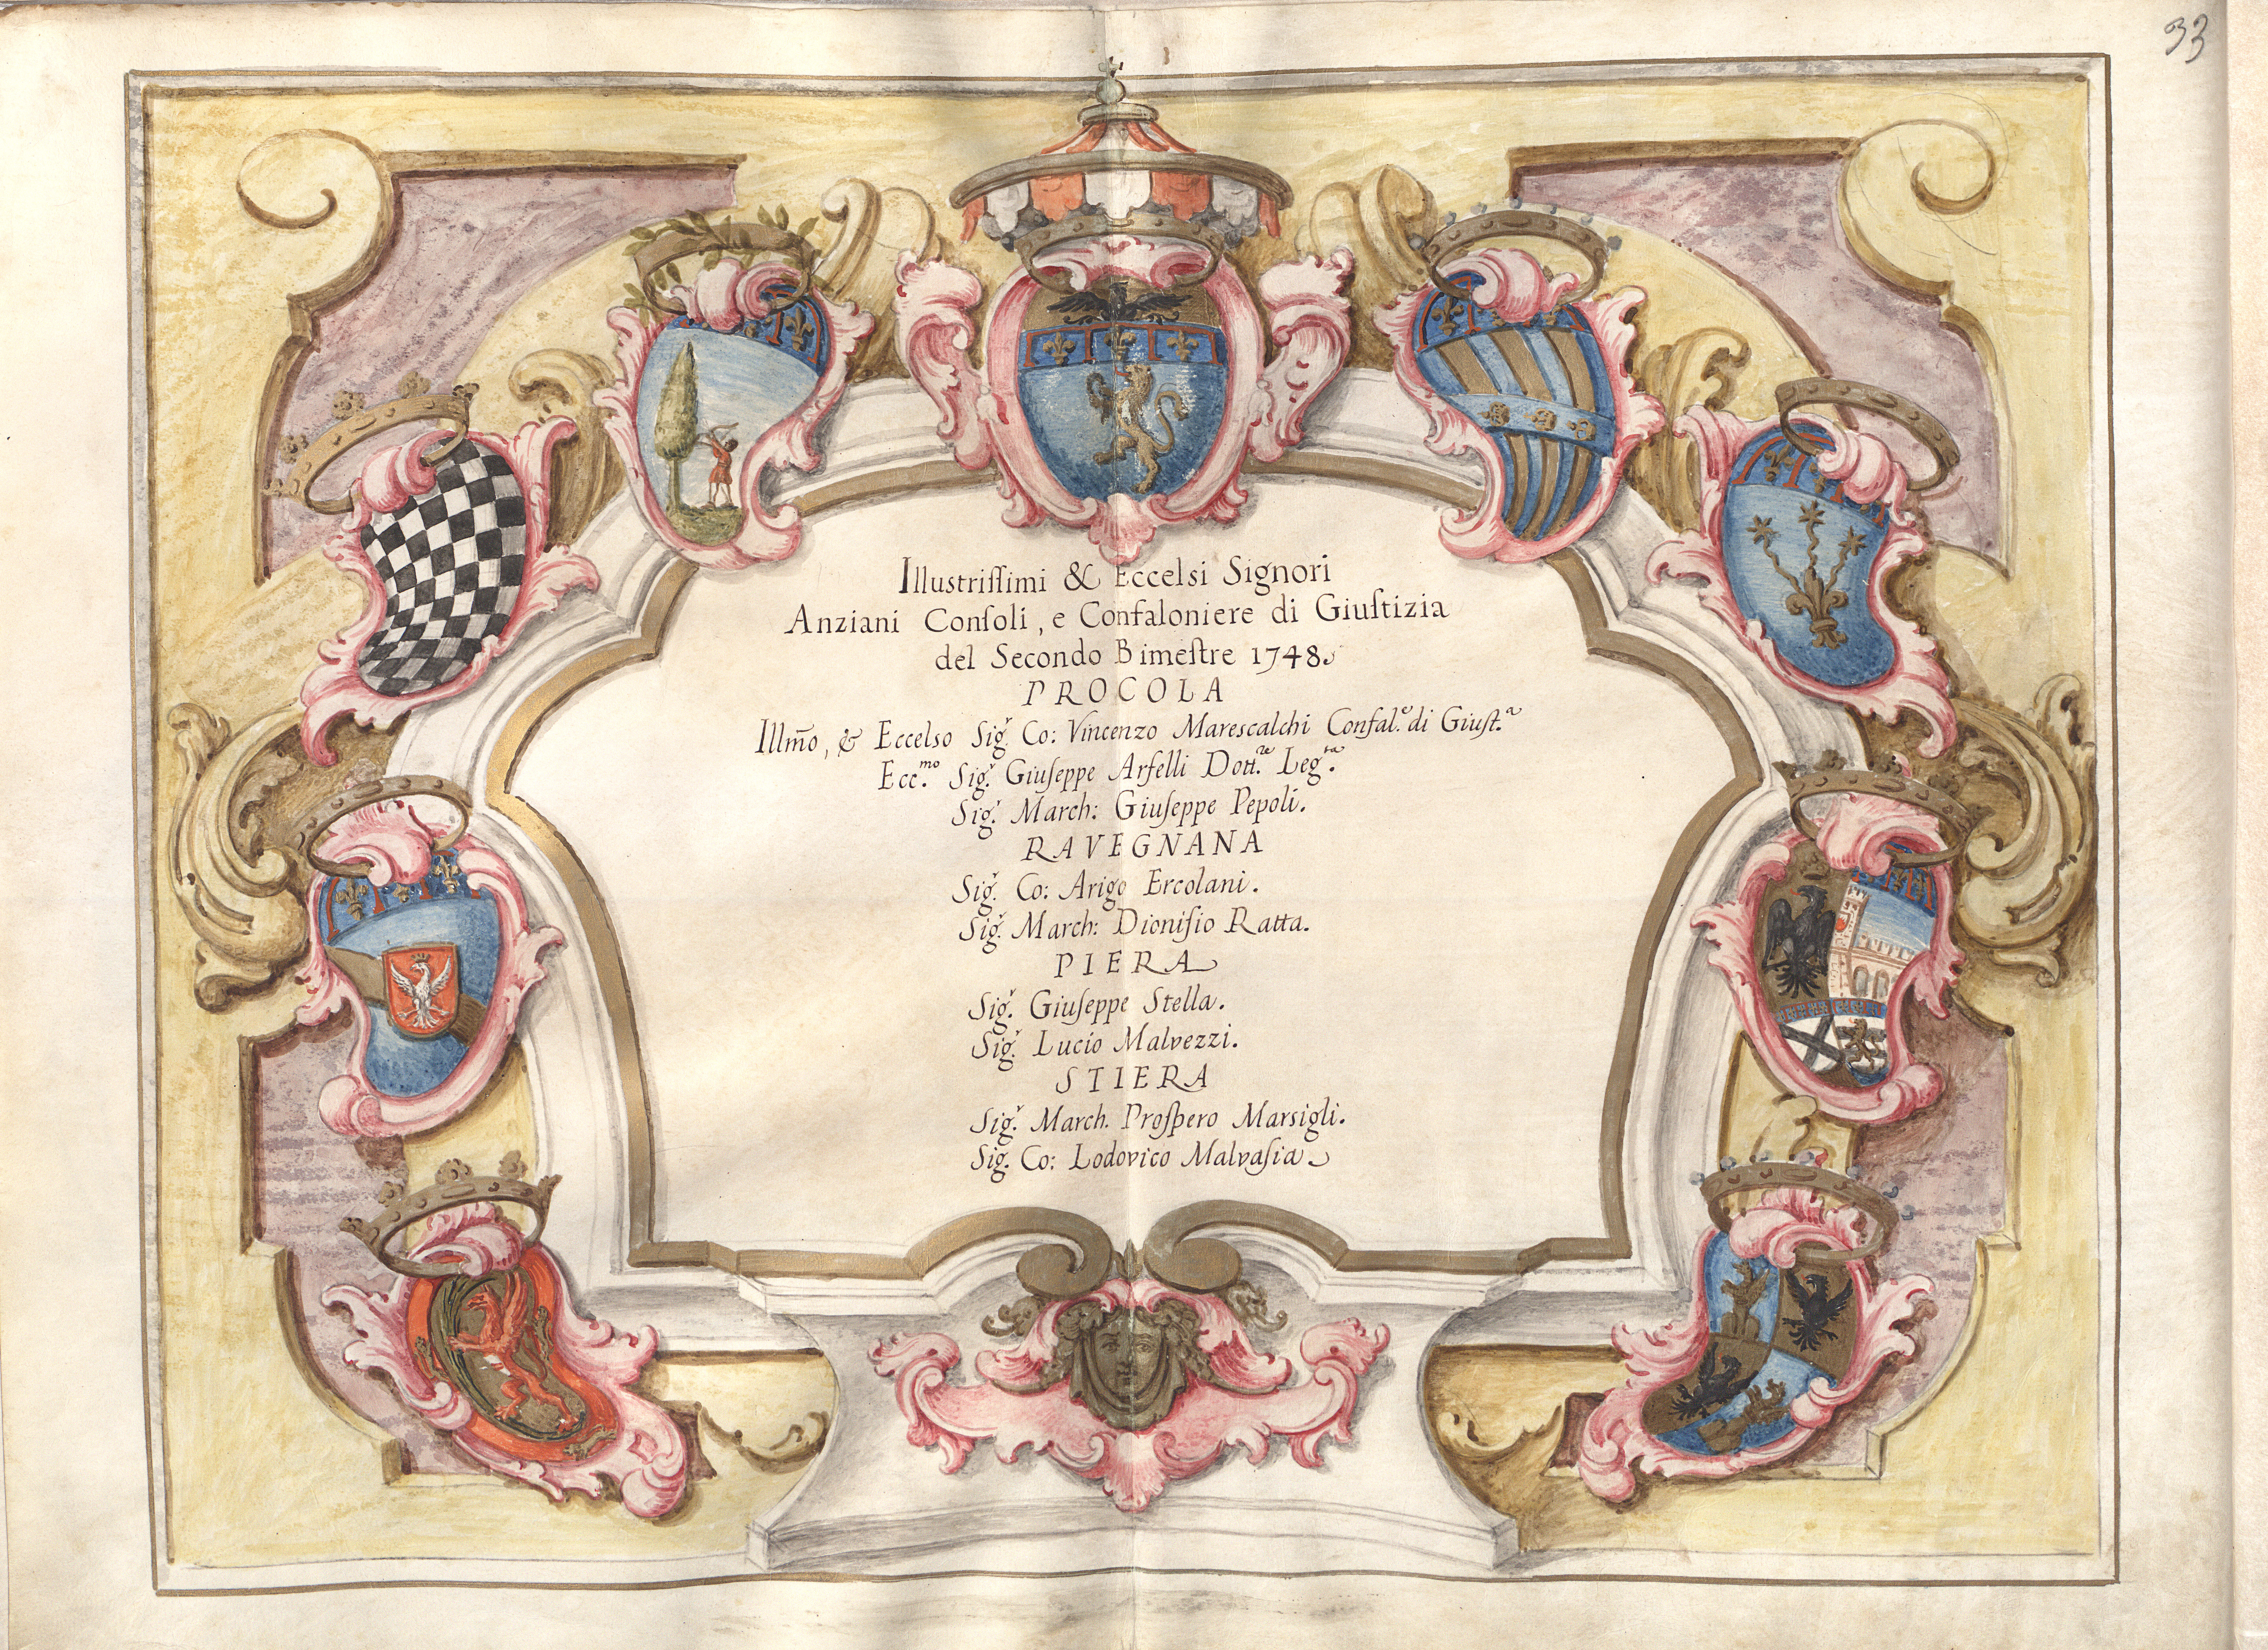 33
Illustrissimi & Eccelsi Signori
Anziani Consoli, e Confaloniere di Giustizia
del Secondo Bimestre 1748.
PROCOLA
Illm̃o, & Eccelso Sig.r Co: Vincenzo Marescalchi Confal.e di Giust.a
Ecc.mo Sig.r Giuseppe Arfelli Dott.re Leg.ta
Sig.r March: Giuseppe Pepoli.
RAVEGNANA
Sig.r Co: Arigo Ercolani.
Sig.r March: Dionisio Ratta.
PIERA
Sig.r Giuseppe Stella.
Sig.r Lucio Malvezzi.
STIERA
Sig.r March. Prospero Marsigli.
Sig. Co: Lodovico Malvasia